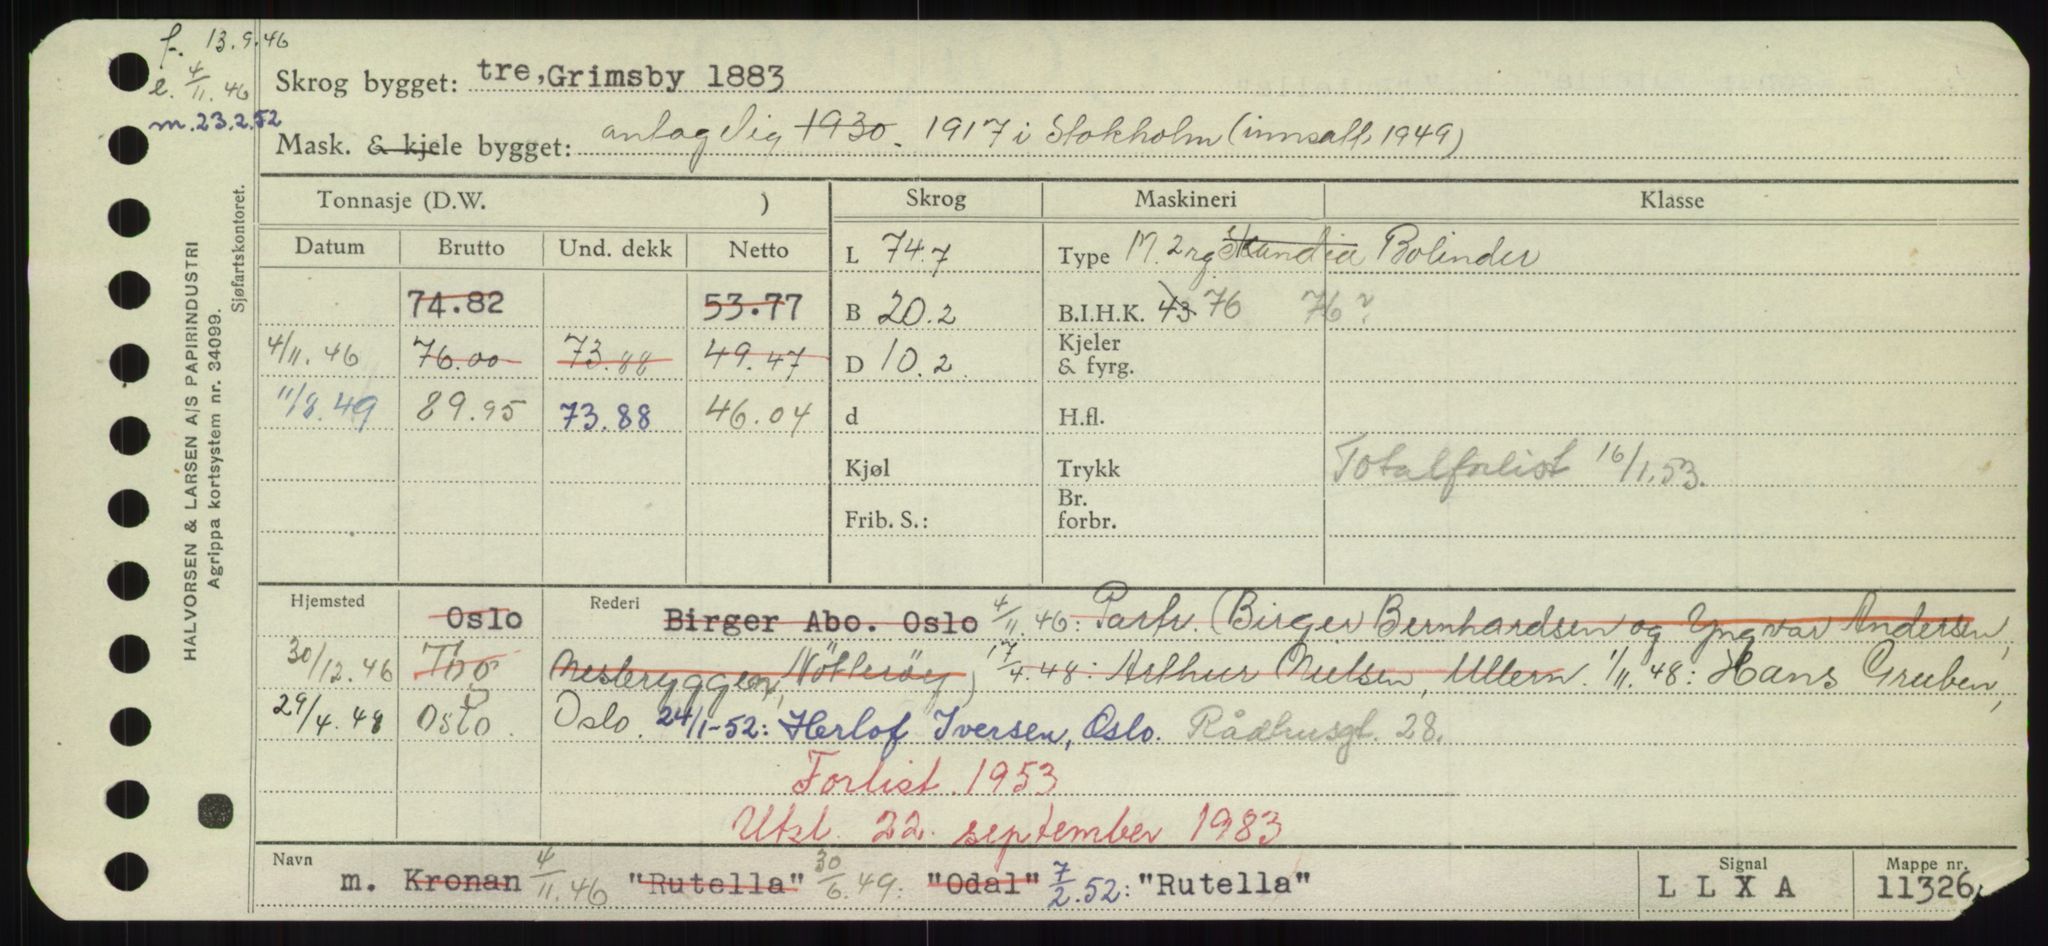 f. 13.9.46
e. 4/11.46
m.23.2.52
HALVORSEN & LARSEN A/S PAPIRINDUSTRI
Agrippa kortsystem nr. 34099.
Sjøfartskontoret.
Skrog bygget: tre, Grimsby 1883
Mask. & kjele bygget: antagelig 1930. 1917 i Stokholm (innsatt 1949)
Tonnasje (D.W. ) Skrog Maskineri Klasse
Datum Brutto Und. dekk Netto L 74.7 Type M. 2 rg. Skandia Bolinder
74.82 53.77 B 20.2 B.I.H.K. 43 76 76?
4/11.46 76.00 73.88 49.47 D 10.2 Kjeler & fyrg.
11/8.49 89.95 73.88 46.04 d H.fl.
Kjøl Trykk Totalforlist 16/1.53.
Frib. S.: Br. forbr.
Hjemsted Oslo Rederi Birger Abo. Oslo 4/11.46: Partr. (Birger Bernhardsen og Yngvar Andersen,
30/12.46 Tbg Nesbryggen, Nötteröy) 17/4.48: Arthur Nielsen, Ullern. 1/11.48: Hans Gruben,
29/4.48 Oslo. Oslo. 24/1-52: Herlof Iversen, Oslo. Rådhusgt. 28.
Forlist. 1953
Utsl. 22. september 1983
Navn m. Kronan 4/11.46 "Rutella" 30/6.49: "Odal" 7/2.52: "Rutella" Signal L L X A Mappe nr. 11326.